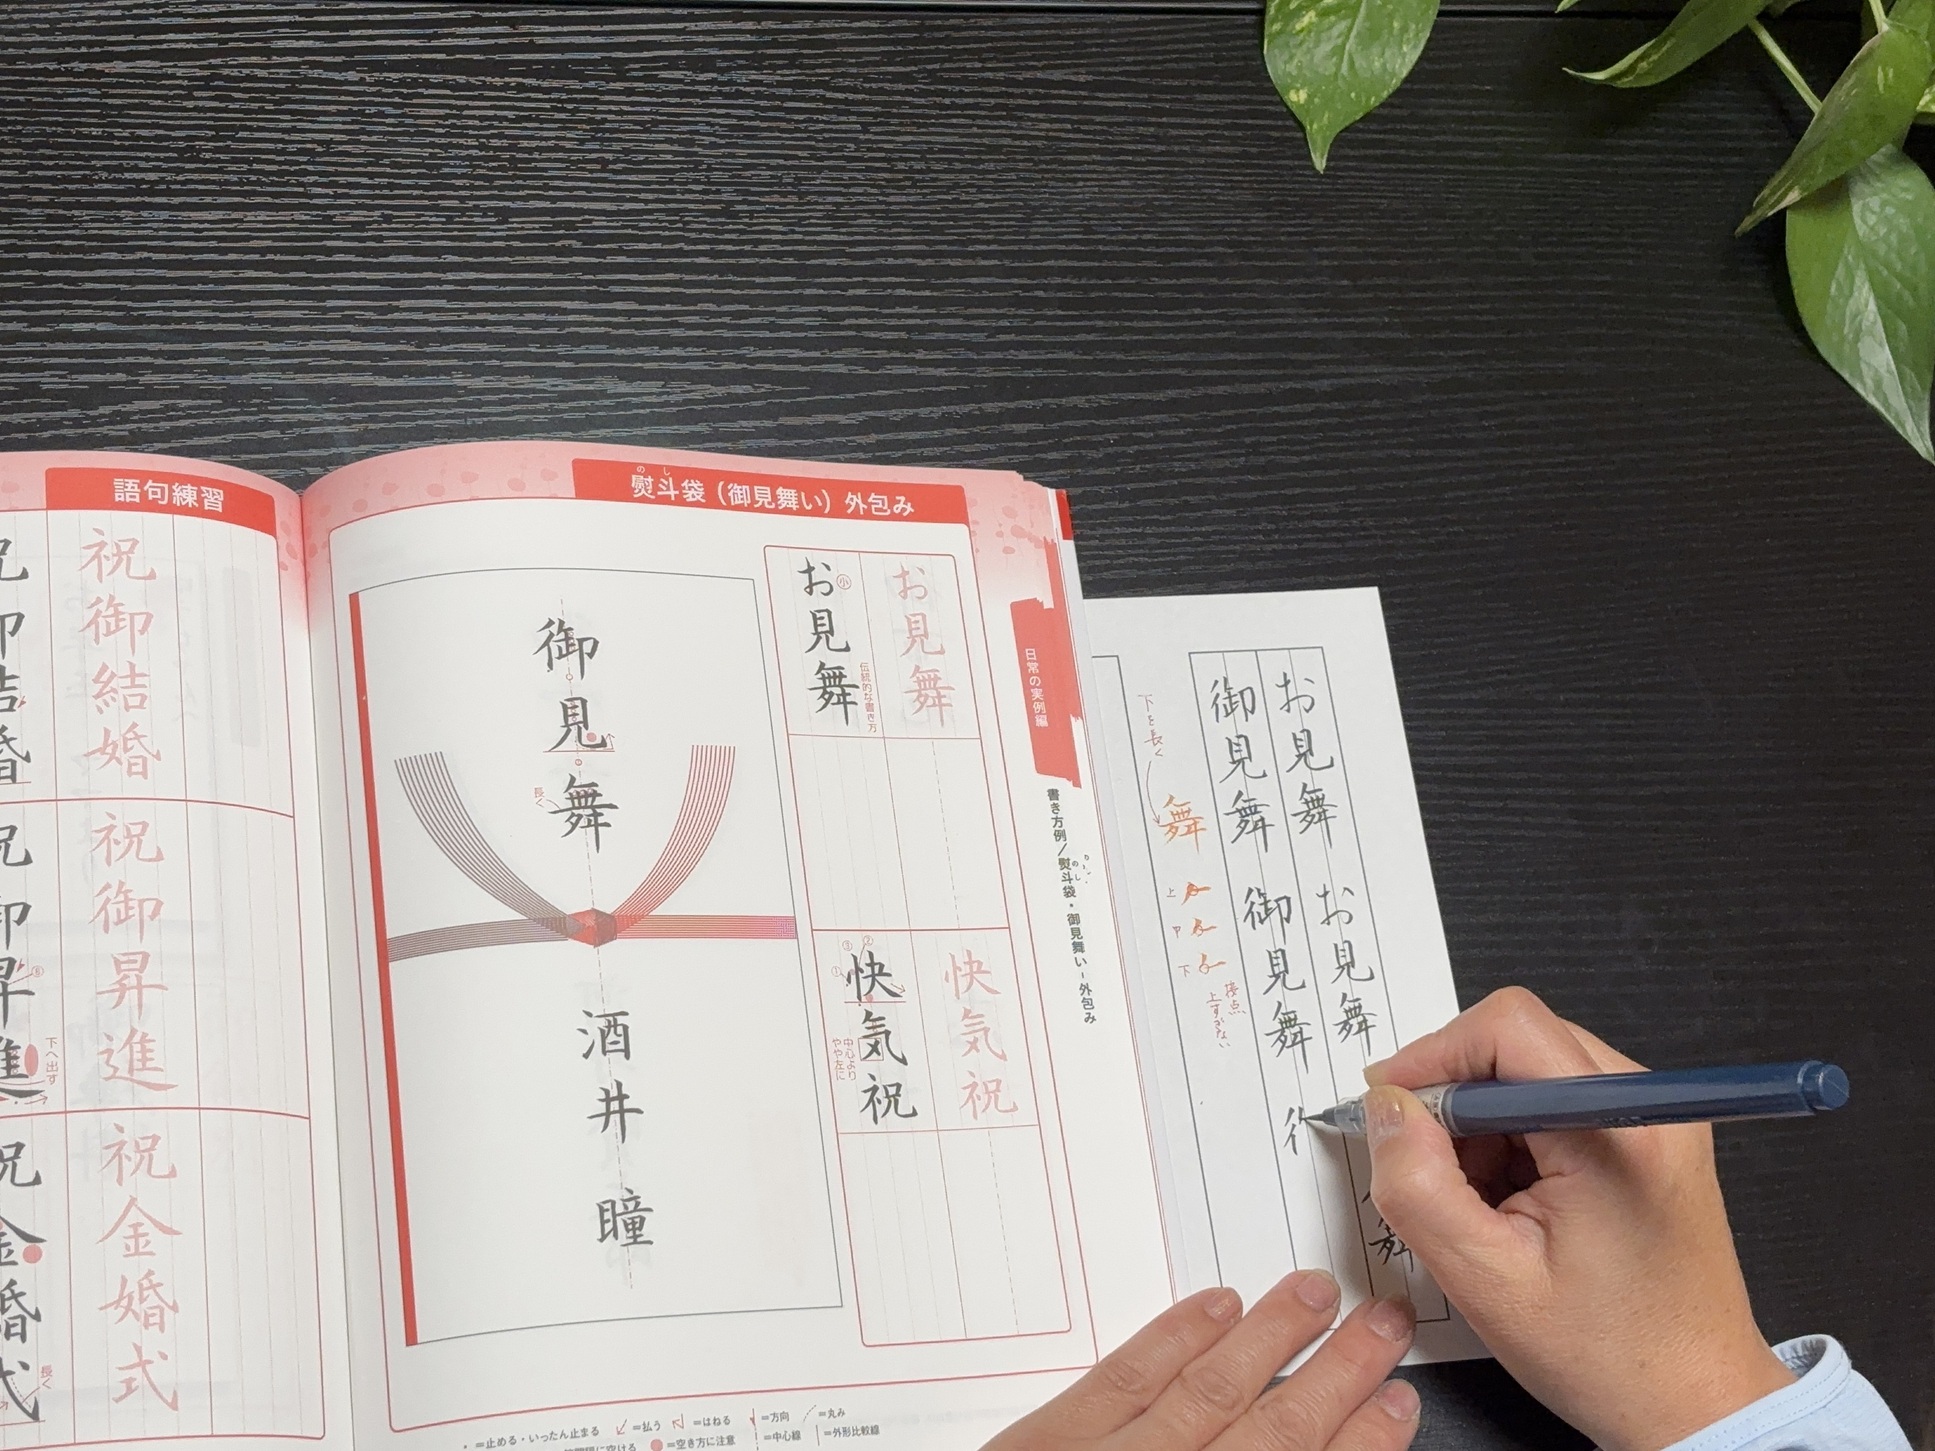 語句練習
祝御結婚
祝御昇進
下へ出す
祝金婚式
長く
のし
熨斗袋（御見舞い）外包み
お見舞
小
お見舞
伝統的な書き方
御見舞
長く
酒井 瞳
快気祝
①②
中心より
やや左に
快気祝
日常の実例編
書き方例／熨斗袋・御見舞い-外包み
=止める・いったん止まる
=払う
=はねる
=方向
=丸み
=空き方に注意
=中心線
=外形比較線
お見舞
お見舞
舞
御見舞
御見舞
下を長く
舞
上
中
下
接点
上すぎない